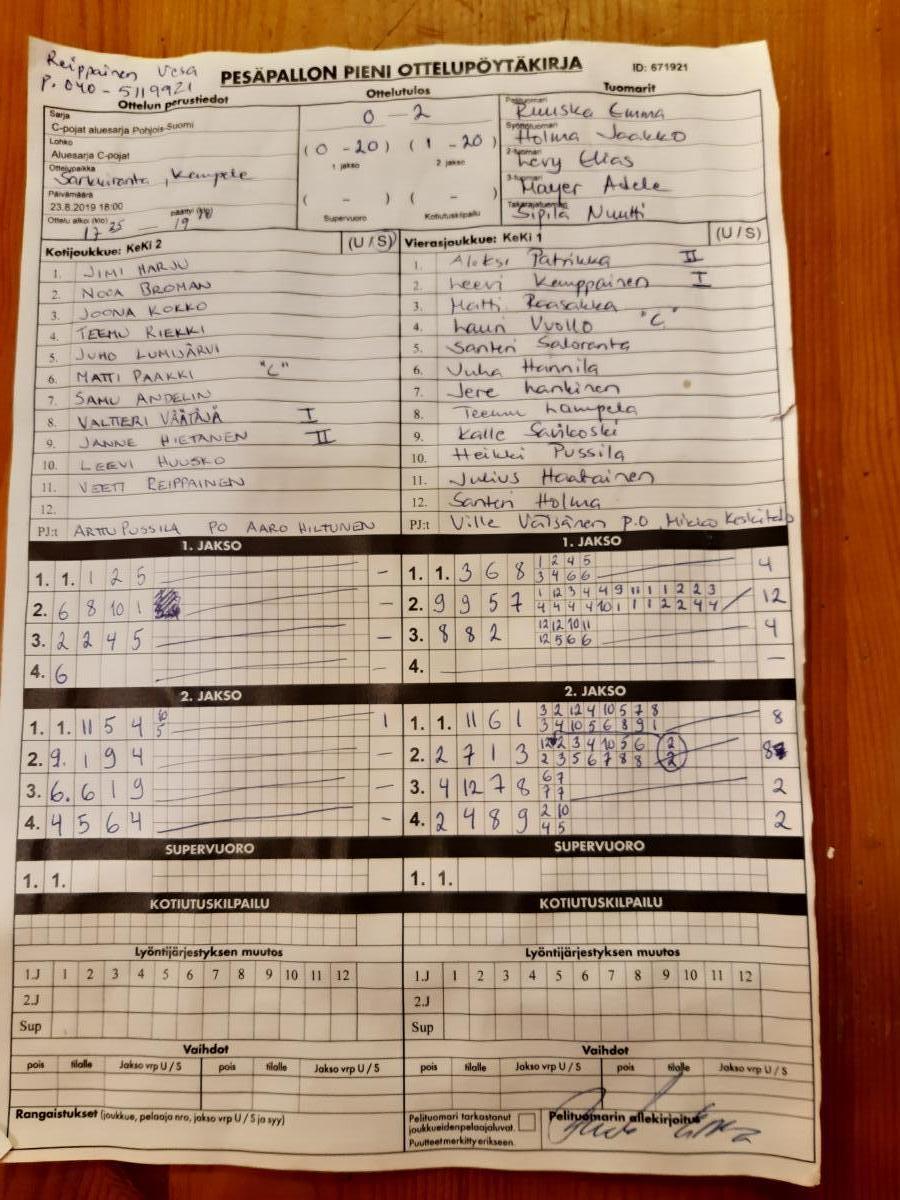 Reippainen Vesa
P. 040-5119921
PESÄPALLON PIENI OTTELUPÖYTÄKIRJA
ID: 671921
Ottelun perustiedot
Ottelutulos
Tuomarit
Sarja
C-pojat aluesarja Pohjois-Suomi
Lohko
Aluesarja C-pojat
Ottelupaikka
Sarkkiranta, Kempele
Päivämäärä
23.8.2019 18:00
Ottelu alkoi (klo) päättyi (klo)
17 35 — 19
0 – 2
(0 – 20) (1 – 20)
1 jakso 2 jakso
( – ) ( – )
Supervuoro Kotiutuskilpailu
Pelituomari
Ruuska Emma
Syöttötuomari
Holma Jaakko
2-tuomari
Levy Elias
3-tuomari
Mayer Adele
Takarajatuomari
Sipilä Nuutti
Kotijoukkue: KeKi 2 (U / S)
1. JIMI HARJU
2. NOOA BROMAN
3. JOONA KOKKO
4. TEEMU RIEKKI
5. JUHO LUMIJÄRVI
6. MATTI PAAKKI "C"
7. SAMU ANDELIN
8. VALTTERI VÄÄTÄJÄ I
9. JANNE HIETANEN II
10. LEEVI HUUSKO
11. VEETI REIPPAINEN
12.
PJ:t ARTTU PUSSILA PO AARO HILTUNEN
Vierasjoukkue: KeKi 1 (U / S)
1. Aleksi Patrikka II
2. Leevi Kemppainen I
3. Matti Raasakka
4. Lauri Vuollo "C"
5. Santeri Saloranta
6. Juha Hannila
7. Jere Lankinen
8. Teemu Lampela
9. Kalle Savikoski
10. Heikki Pussila
11. Julius Haatainen
12. Santeri Holma
PJ:t Ville Väisänen P.O Mikko Keskitalo
1. JAKSO
1. 1. 1 2 5 –
2. 6 8 10 1 –
3. 2 2 4 5 –
4. 6 –
2. JAKSO
1. 1. 11 5 4 10 1
5
2. 9. 1 9 4 –
3. 6. 6 1 9 –
4. 4 5 6 4 –
SUPERVUORO
1. 1.
KOTIUTUSKILPAILU
Lyöntijärjestyksen muutos
1.J 1 2 3 4 5 6 7 8 9 10 11 12
2.J
Sup
Vaihdot
pois tilalle Jakso vrp U / S pois tilalle Jakso vrp U / S
Rangaistukset (joukkue, pelaaja nro, jakso vrp U / S ja syy)
1. JAKSO
1. 1. 3 6 8 1 2 4 5 4
3 4 6 6
2. 9 9 5 7 1 12 3 4 4 9 11 1 1 2 2 3 12
4 4 4 4 10 1 1 1 2 2 4 4
3. 8 8 2 12 12 10 11 4
12 5 6 6
4. –
2. JAKSO
1. 1. 11 6 1 3 2 12 4 10 5 7 8 8
3 4 10 5 6 8 9 1
2. 2 7 1 3 12 2 3 4 10 5 6 2 8
2 3 5 6 7 8 8 2
3. 4 12 7 8 6 7 2
7 7
4. 2 4 8 9 2 10 2
4 5
SUPERVUORO
1. 1.
KOTIUTUSKILPAILU
Lyöntijärjestyksen muutos
1.J 1 2 3 4 5 6 7 8 9 10 11 12
2.J
Sup
Vaihdot
pois tilalle Jakso vrp U / S pois tilalle Jakso vrp U / S
Pelituomari tarkastanut
joukkueidenpelaajaluvat.
Puutteetmerkitty erikseen.
Pelituomarin allekirjoitus